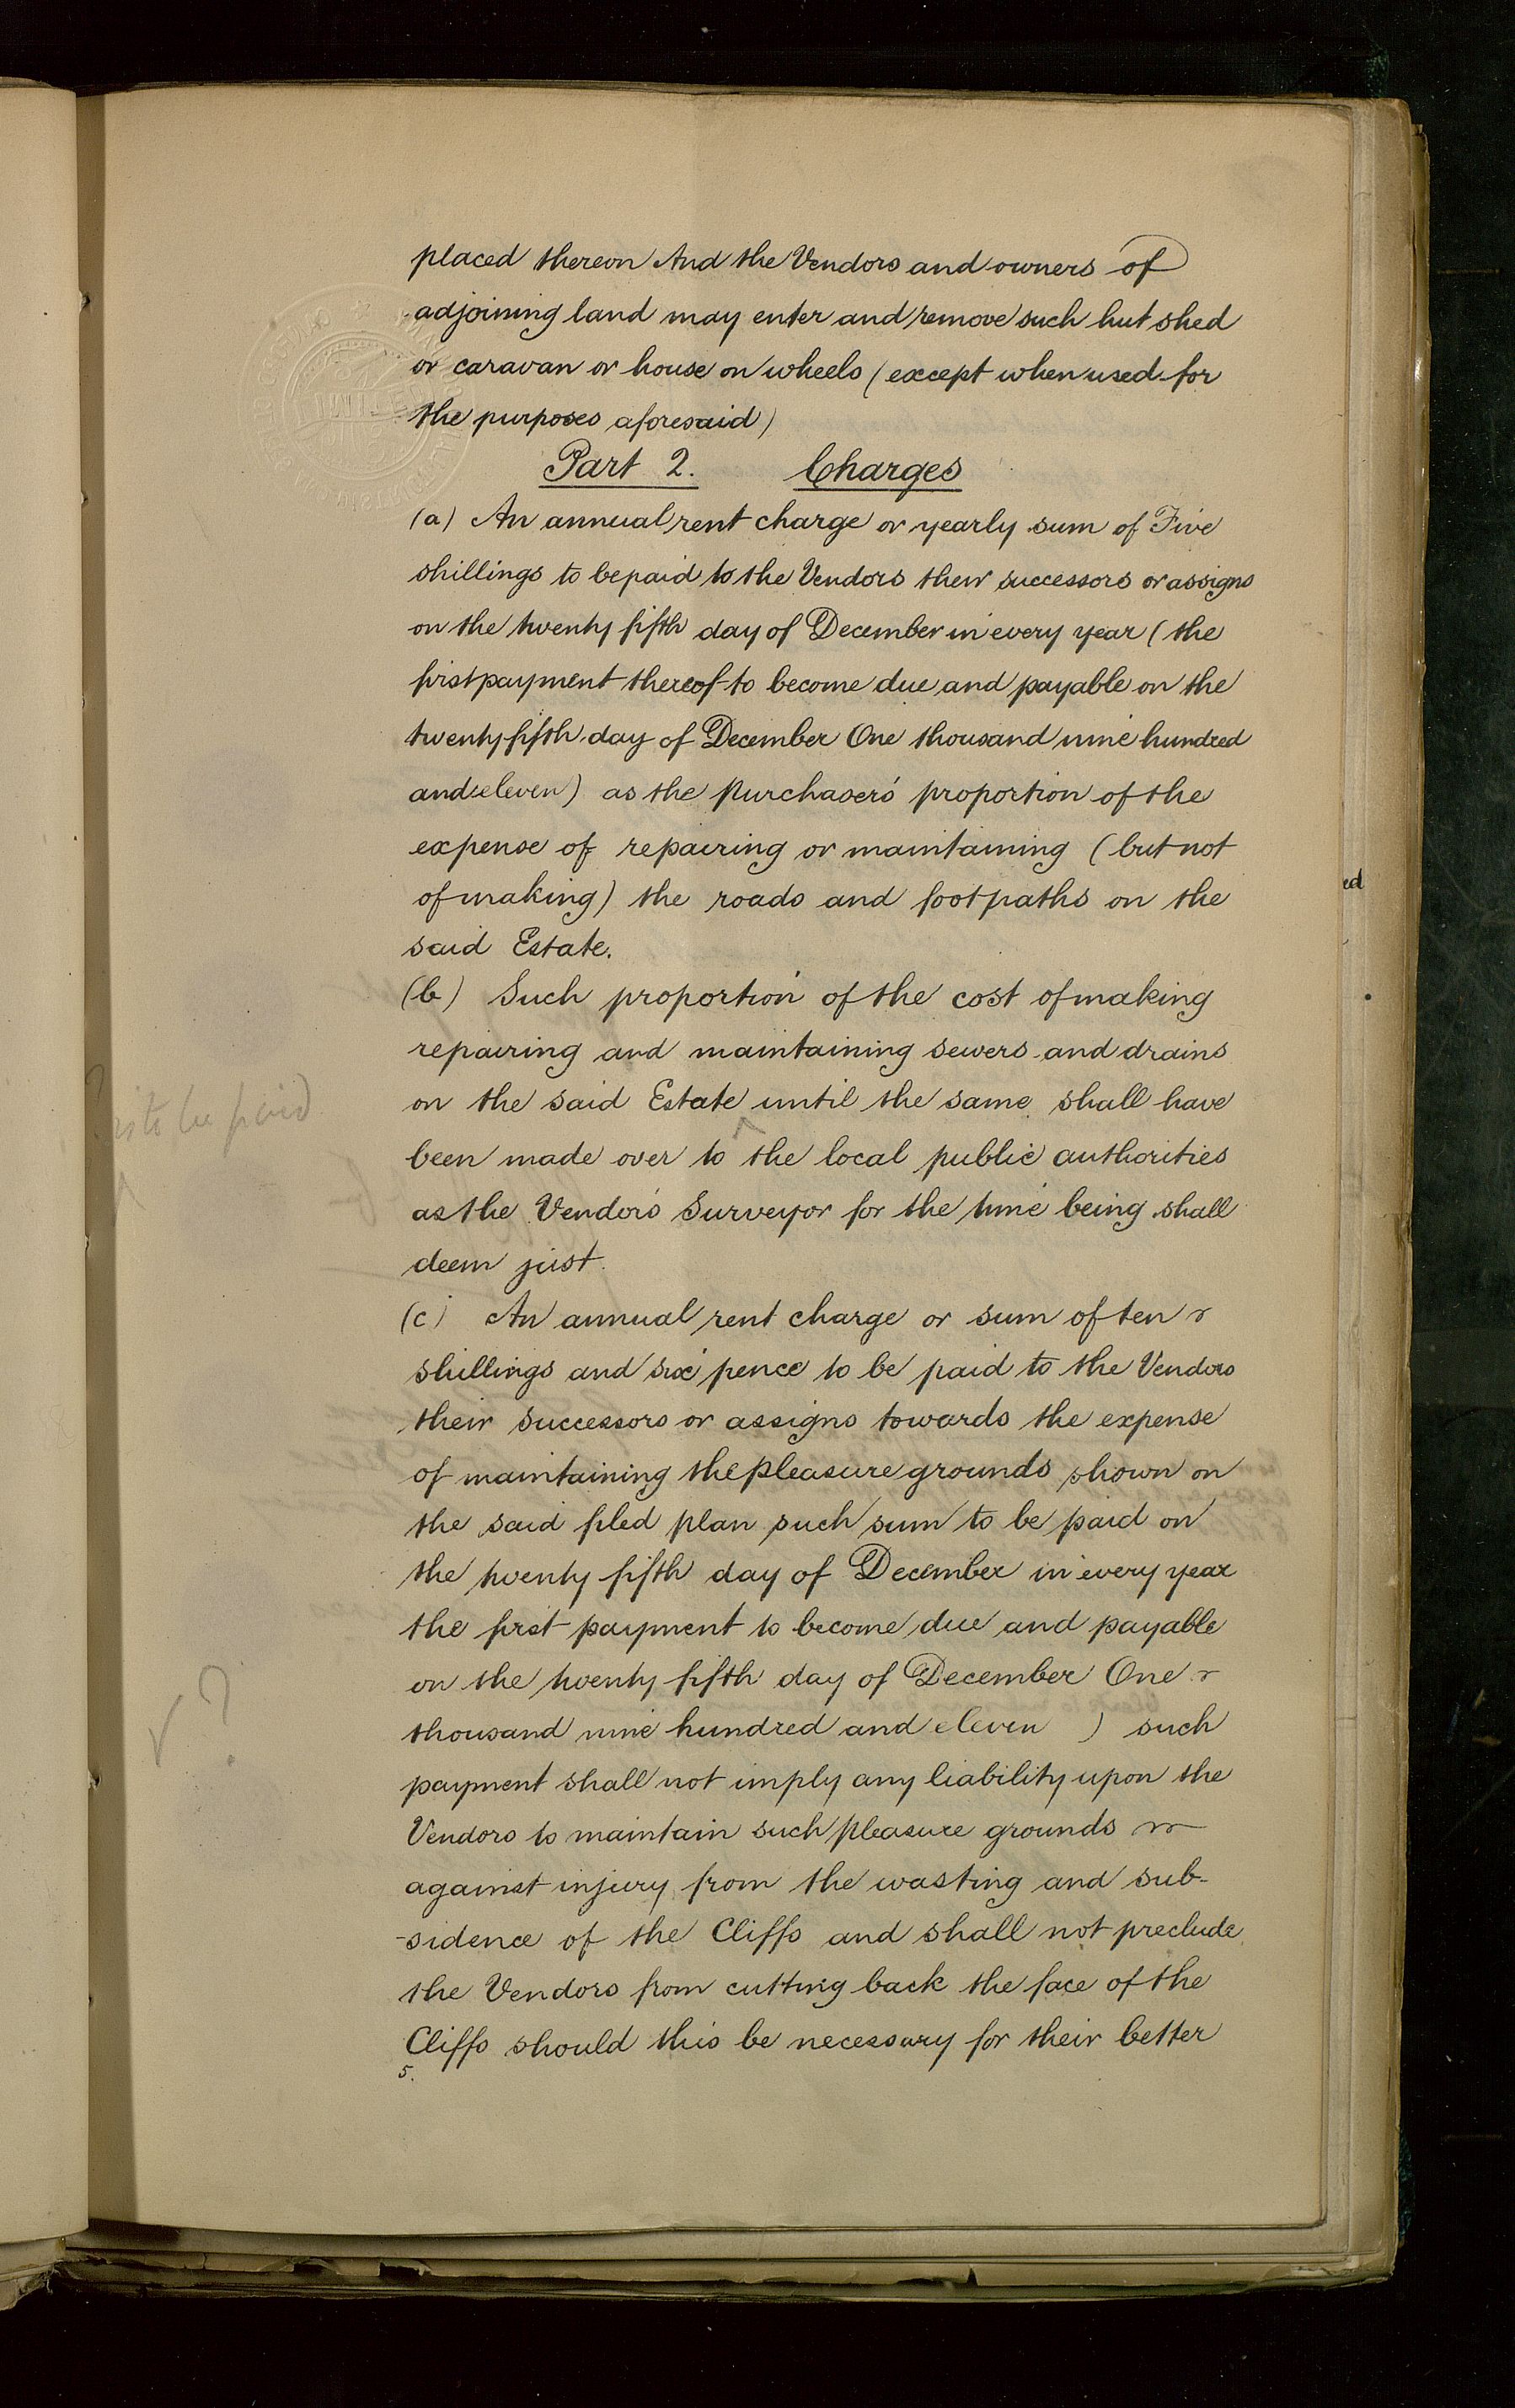 placed thereon And the Vendors and owners of
adjoining land may enter and remove such hut shed
or caravan or house on wheels (except when used for
the purposes aforesaid)
Part 2. Charges
(a) An annual rent charge or yearly sum of Five
shillings to be paid to the Vendors their successors or assigns
on the twenty fifth day of December in every year (the
first payment thereof to become due and payable on the
twenty fifth day of December One thousand nine hundred
and eleven) as the Purchasers proportion of the
expense of repairing or maintaining (but not
of making) the roads and footpaths on the
said Estate.
(b) Such proportion of the cost of making
repairing and maintaining sewers and drains
on the said Estate until the same shall have
to be paid
been made over to the local public authorities
as the Vendors Surveyor for the time being shall
deem just.
(c) An annual rent charge or sum of ten
shillings and six pence to be paid to the Vendors
their successors or assigns towards the expense
of maintaining the pleasure grounds shown on
the said filed plan such sum to be paid on
the twenty fifth day of December in every year
the first payment to become due and payable
on the twenty fifth day of December One
?
thousand nine hundred and eleven ) such
payment shall not imply any liability upon the
Vendors to maintain such pleasure grounds
against injury from the wasting and sub-
-sidence of the Cliffs and shall not preclude
the Vendors from cutting back the face of the
Cliffs should this be necessary for their better
5.
ed